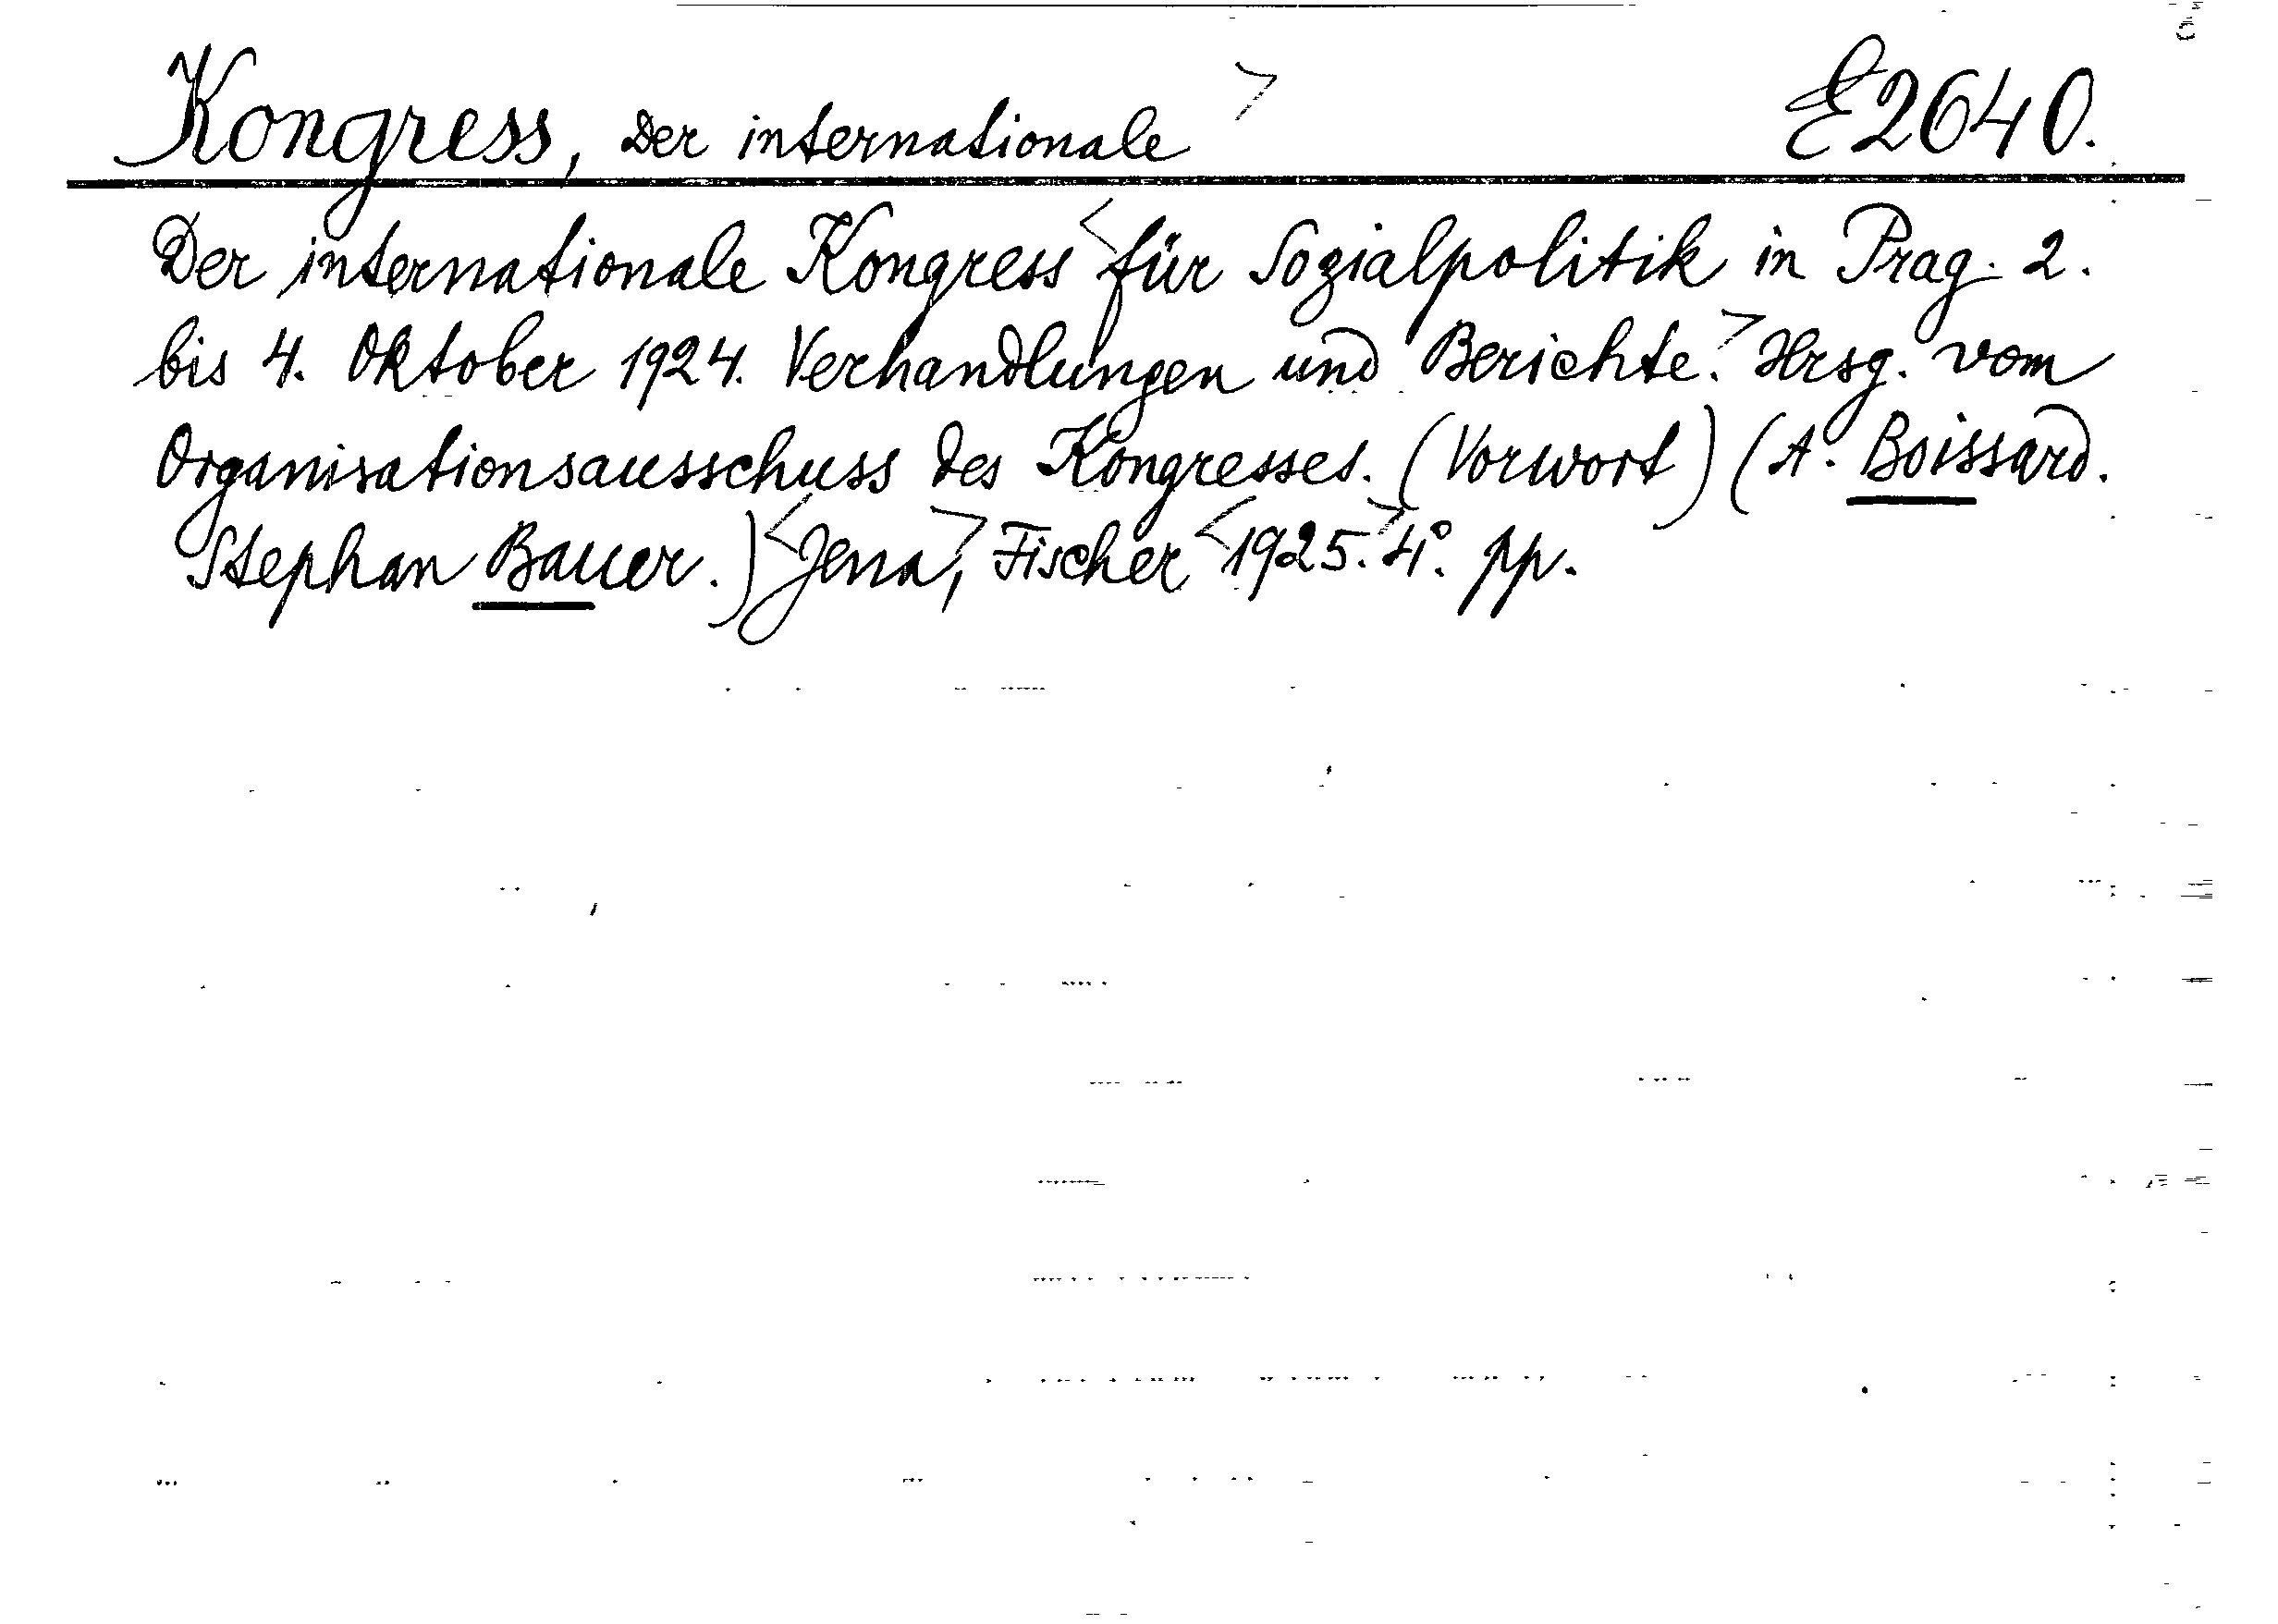 Kongress, Der internationale > E2640.
Der internationale Kongress < für Sozialpolitik in Prag. 2.
bis 4. Oktober 1924. Verhandlungen und Berichte. > Hrsg. vom
Organisationsausschuss des Kongresses. (Vorwort) (A. Boissard.
Stephan Bauer.) < Jena, > Fischer < 1925. > 4°. pp.